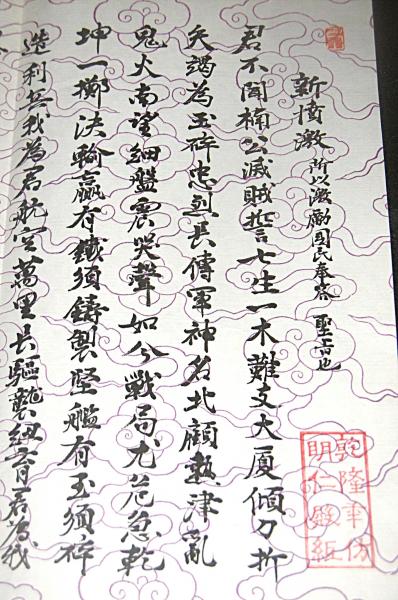 新憤激 所以激勵國民奉答 聖旨也
君不聞楠公滅賊誓七生一木難支大廈傾刀折
矢竭為玉碎忠烈長傳軍神名北顧熱津亂
鬼火南望細盤震哭聲如今戰局尤危急乾
坤一擲決輸贏有鐵須鑄製堅艦有玉須碎
造利兵我為君航空萬里長驅襲紐育君為我
乾隆年仿
明仁殿紙